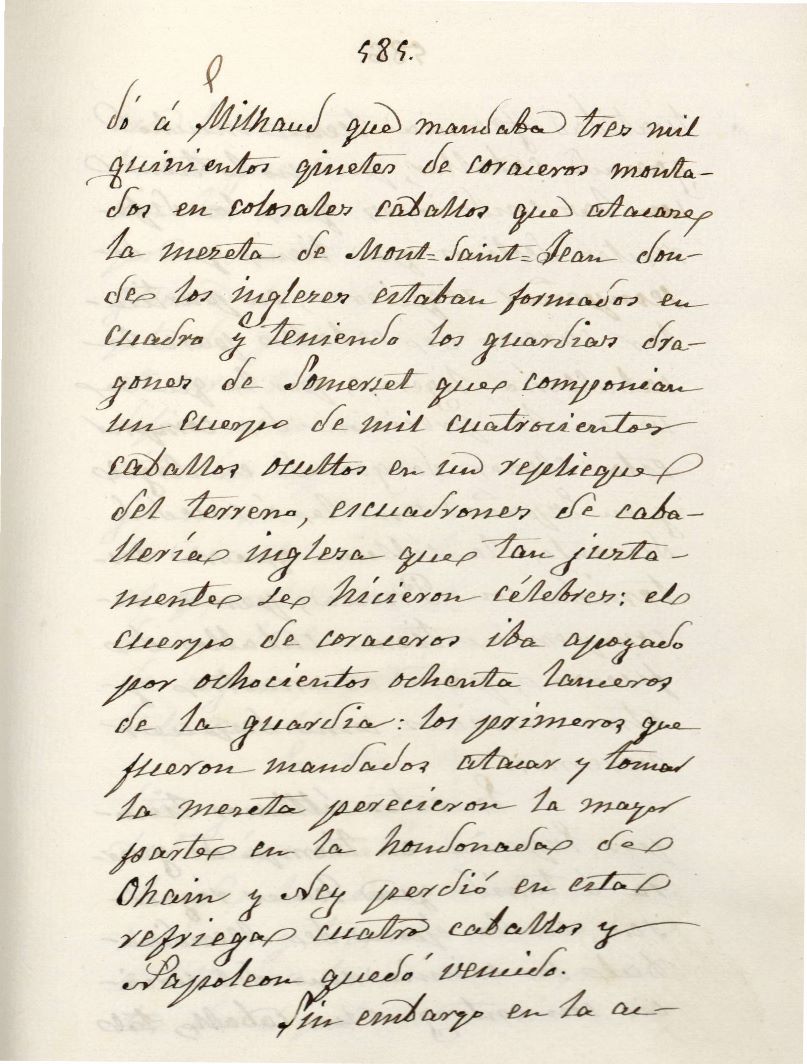 585.
dó á Milhaud que mandaba tres mil
quinientos ginetes de coraceros monta-
dos en colosales caballos que atacase
la meseta de Mont=Saint=Jean don-
de los ingleses estaban formados en
cuadro y teniendo los guardias dra-
gones de Somerset que componian
un cuerpo de mil cuatrocientos
caballos ocultos en un repliegue
del terreno, escuadrones de caba-
llería inglesa que tan justa-
mente se hicieron célebres: el
cuerpo de coraceros iba apoyado
por ochocientos ochenta lanceros
de la guardia: los primeros que
fueron mandados atacar y tomar
la meseta perecieron la mayor
parte en la hondonada de
Ohain y Ney perdió en esta
refriega cuatro caballos y
Napoleon quedó vencido.
Sin embargo en la ac-